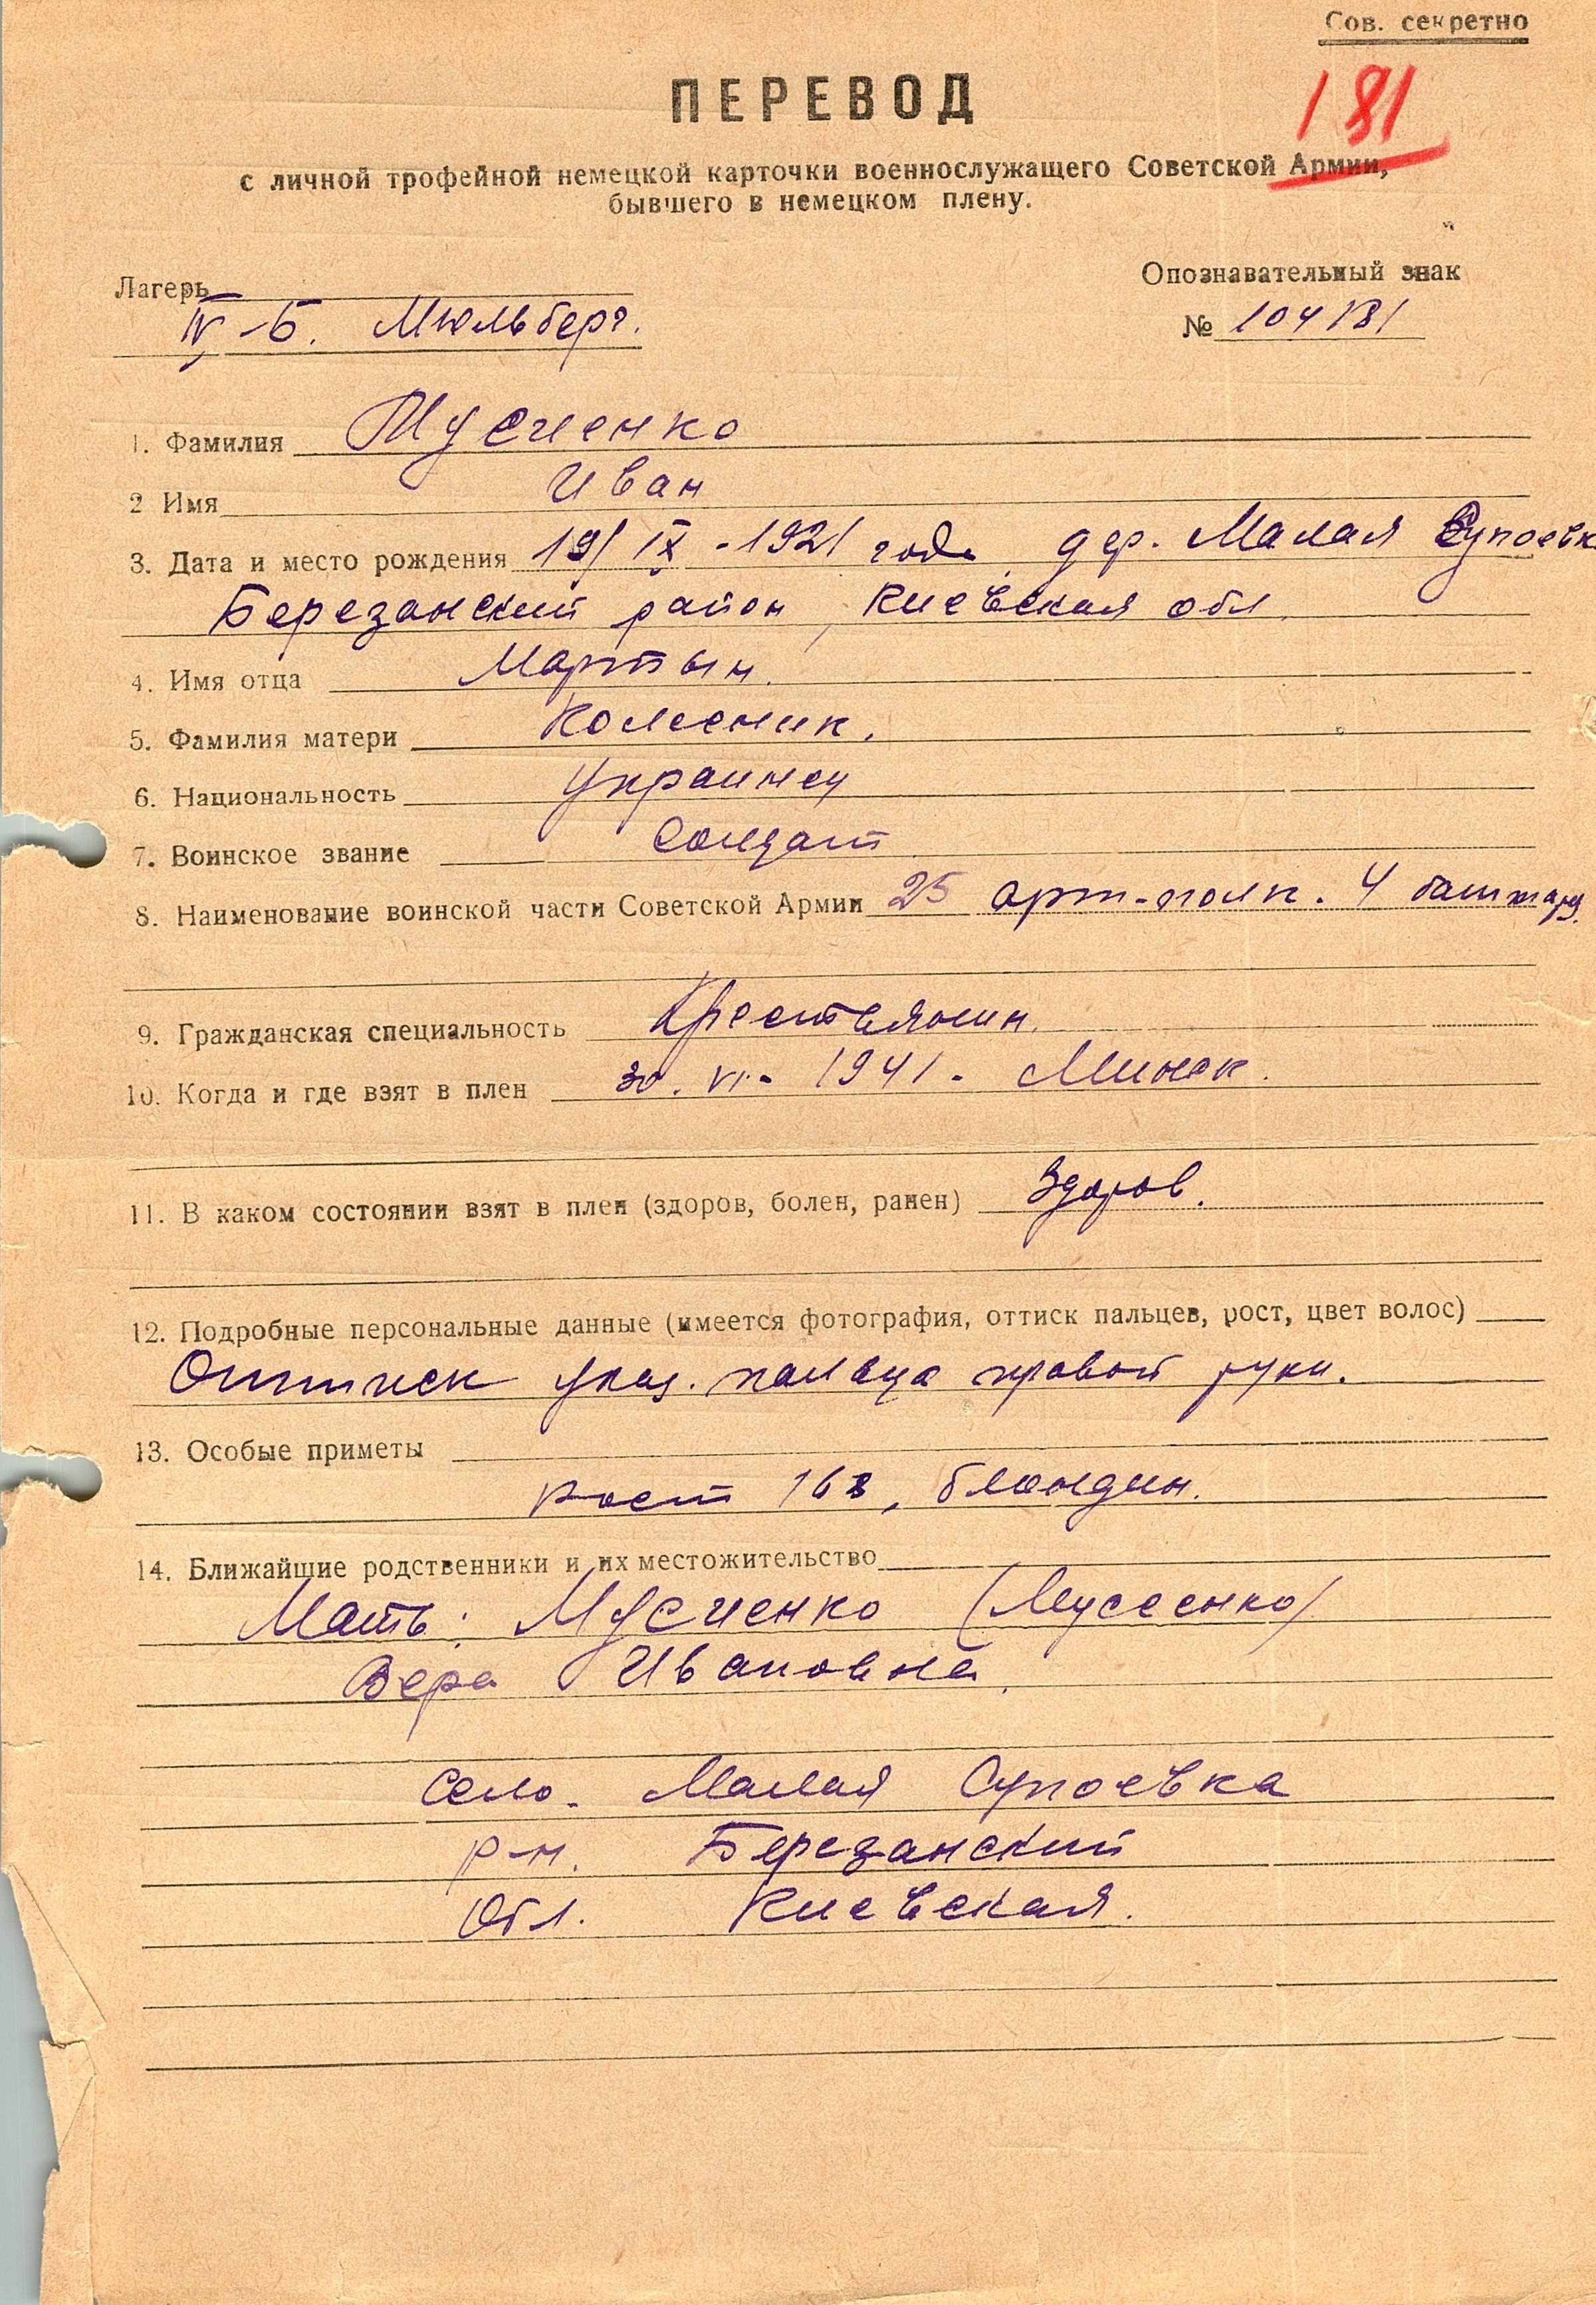 Сов. секретно
ПЕРЕВОД
181
с личной трофейной немецкой карточки военнослужащего Советской Армии,
бывшего в немецком плену.
Лагерь
IV-Б. Мюльберг.
Опознавательный знак
№ 104181
1. Фамилия Мусиенко
2 Имя Иван
3. Дата и место рождения 19/IX-1921 года дер. Малая Супоевк
Березанский район, Киевская обл.
4. Имя отца Мартын.
5. Фамилия матери Колесник.
6. Национальность Украинец
7. Воинское звание Солдат.
8. Наименование воинской части Советской Армии 25 арт-полк. 4 батарея.
9. Гражданская специальность Крестьянин.
10. Когда и где взят в плен 30. VI. 1941. Минск.
11. В каком состоянии взят в плен (здоров, болен, ранен) Здоров.
12. Подробные персональные данные (имеется фотография, оттиск пальцев, рост, цвет волос)
Оттиск указ. пальца правой руки.
13. Особые приметы
Рост 168, блондин.
14. Ближайшие родственники и их местожительство
Мать: Мусиенко (Мусеенко)
Вера Ивановна.
Село. Малая Супоевка
р-н. Березанский
Обл. Киевская.